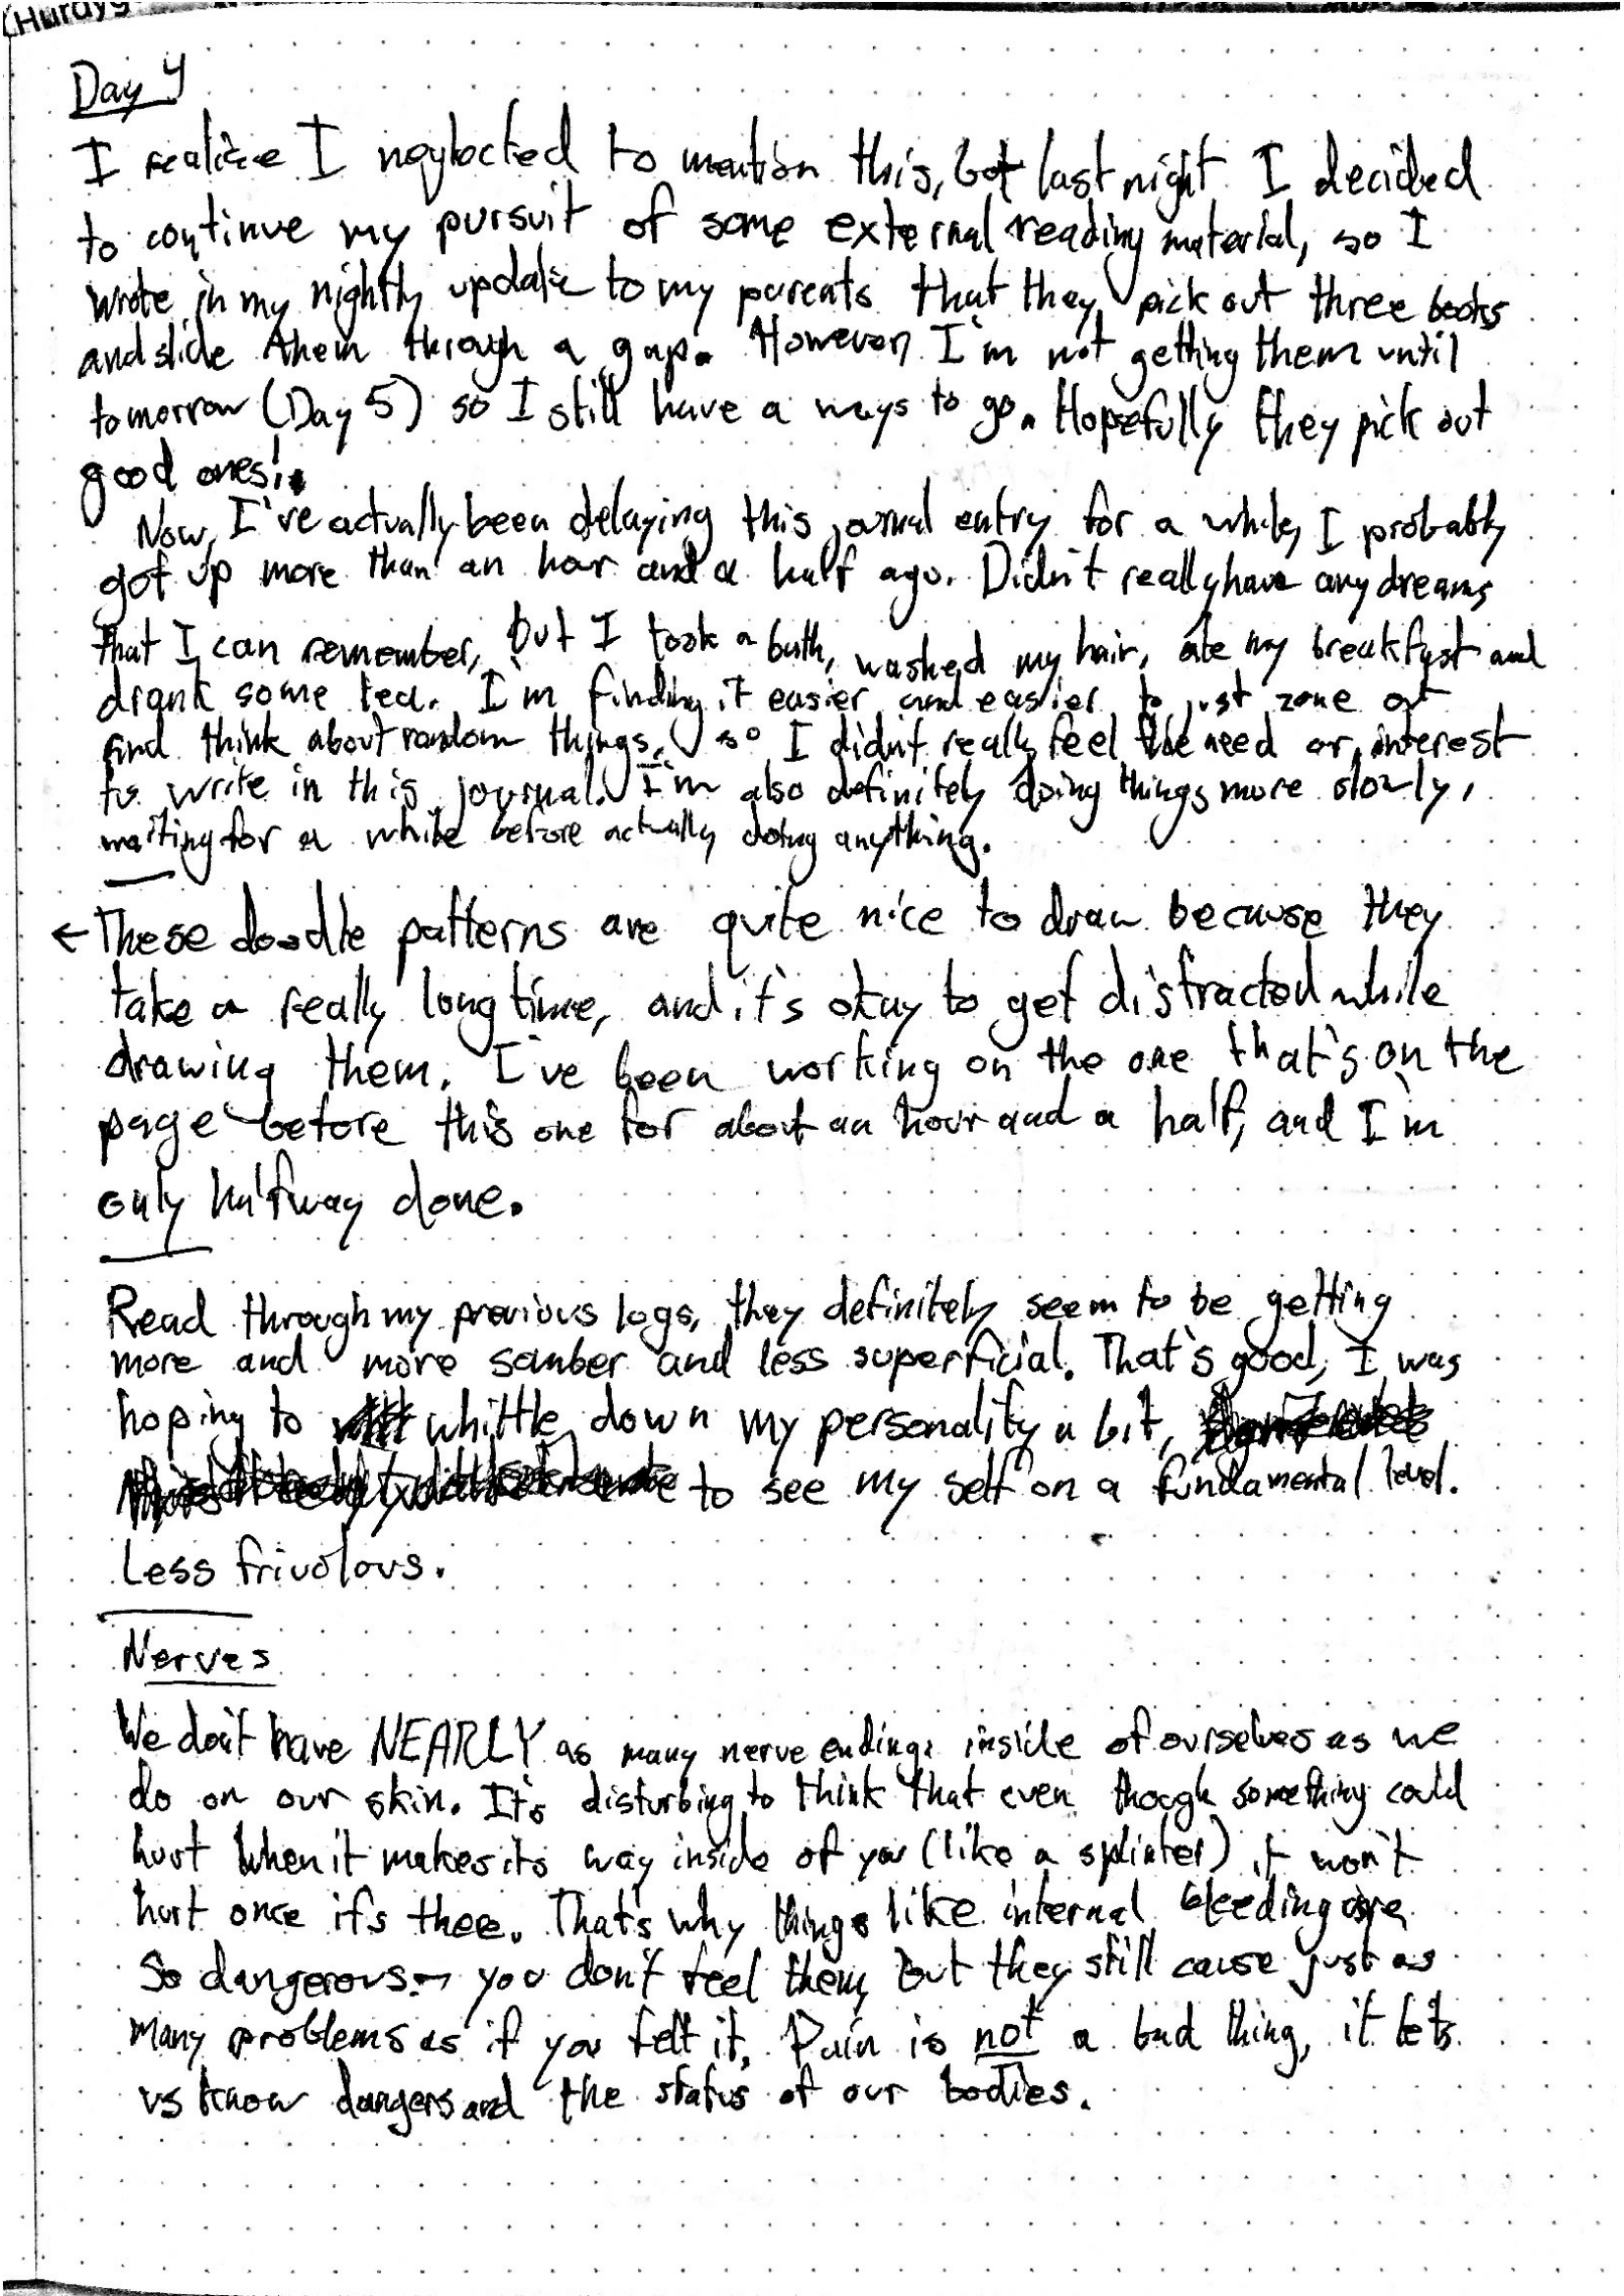 Day 4
I realize I neglected to mention this, but last night I decided
to continue my pursuit of some external reading material, so I
wrote in my nightly update to my parents that they pick out three books
and slide them through a gap. However I'm not getting them until
tomorrow (Day 5) so I still have a ways to go. Hopefully they pick out
good ones!
Now, I've actually been delaying this journal entry for a while, I probably
got up more than an hour and a half ago. Didn't really have any dreams
that I can remember, but I took a bath, washed my hair, ate my breakfast and
drank some tea. I'm finding it easier and easier to just zone out
and think about random things, so I didn't really feel the need or interest
to write in this journal. I'm also definitely doing things more slowly,
waiting for a while before actually doing anything.
← These doodle patterns are quite nice to draw because they
take a really long time, and it's okay to get distracted while
drawing them. I've been working on the one that's on the
page before this one for about an hour and a half, and I'm
only halfway done.
Read through my previous logs, they definitely seem to be getting
more and more somber and less superficial. That's good, I was
hoping to whittle down my personality a bit,
to see my self on a fundamental level.
Less frivolous.
Nerves
We don't have NEARLY as many nerve endings inside of ourselves as we
do on our skin. It's disturbing to think that even though something could
hurt when it makes its way inside of you (like a splinter) it won't
hurt once it's there. That's why things like internal bleeding are
so dangerous - you don't feel them, but they still cause just as
many problems as if you felt it. Pain is not a bad thing, it lets
us know dangers and the status of our bodies.